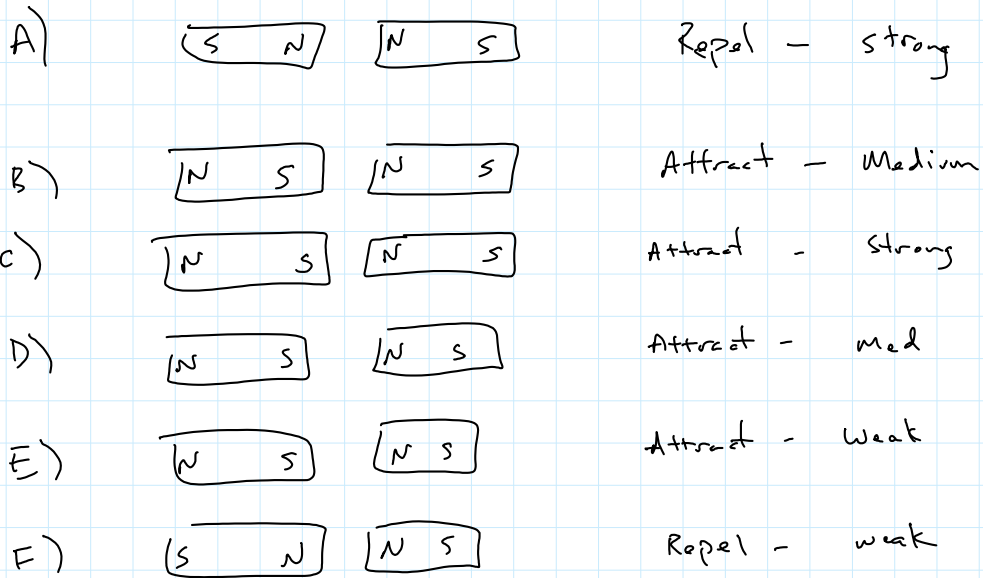 A) S N N S Repel - strong
B) N S N S Attract - Medium
C) N S N S Attract - Strong
D) N S N S Attract - Med
E) N S N S Attract - Weak
F) S N N S Repel - weak